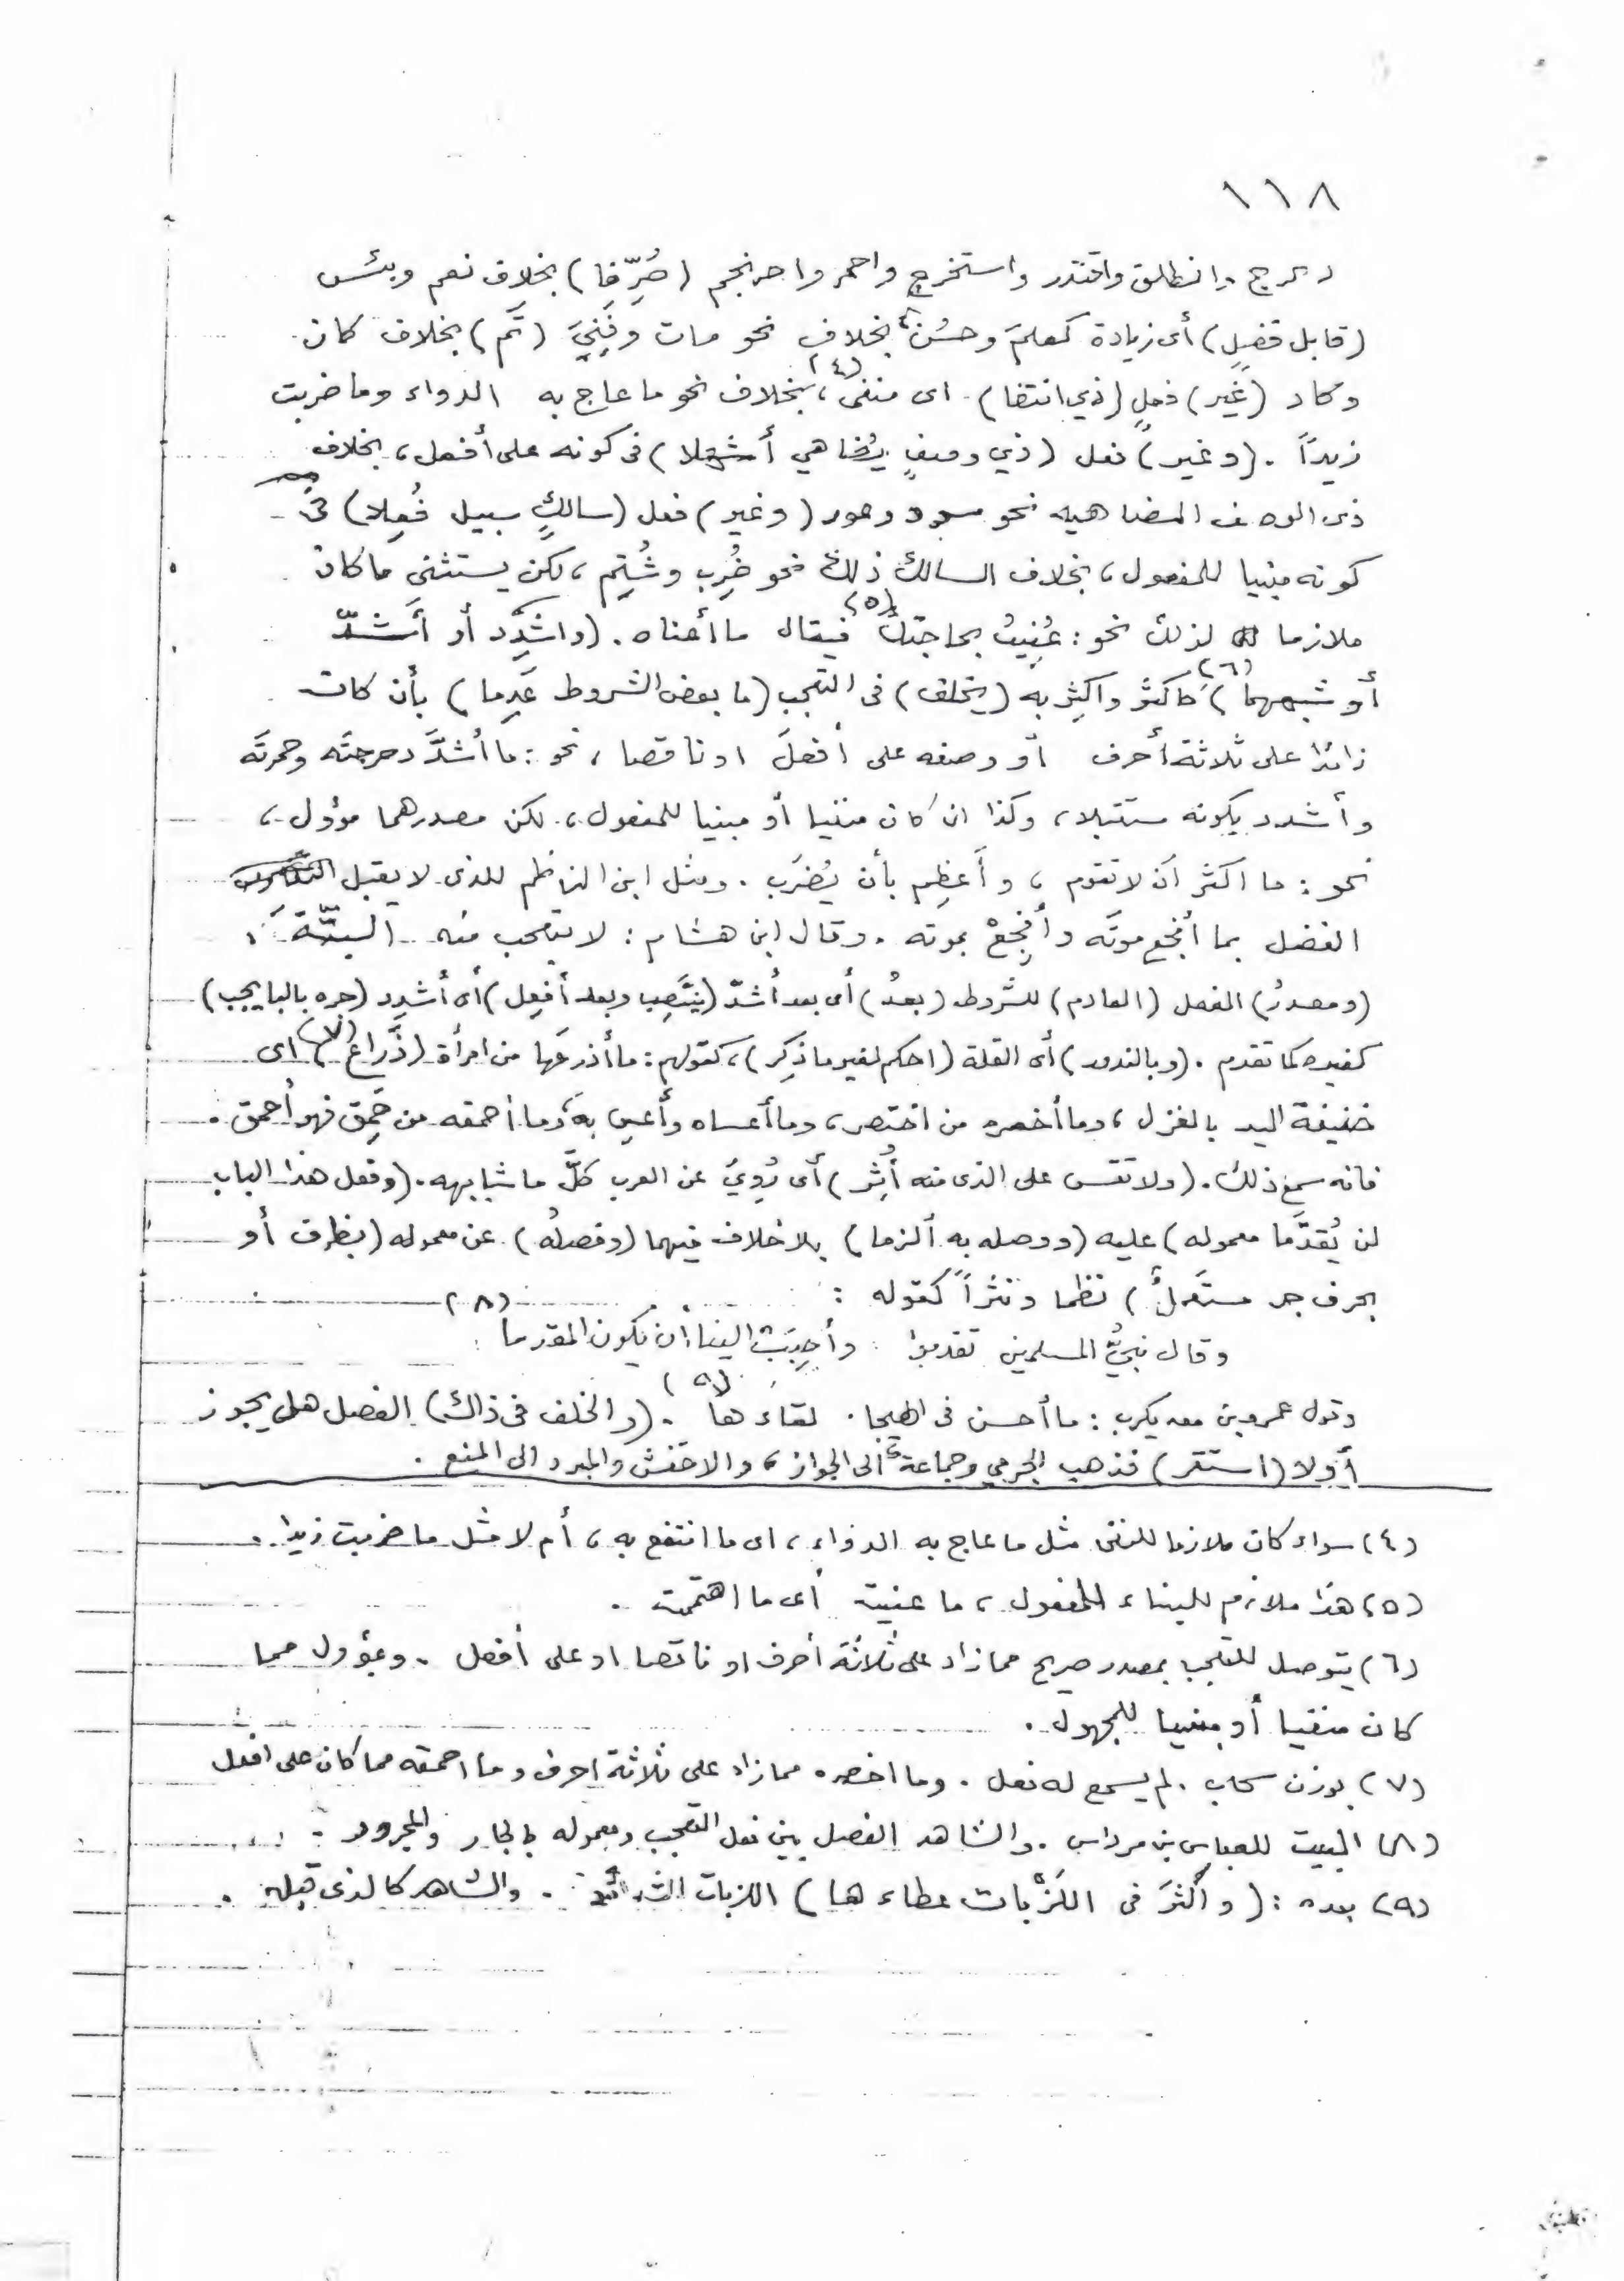 ١١٨
دحرج وانطلق واقتدر واستخرج واحمر واحرنجم (صُرِّفا) بخلاف نعم وبئس
(قابل فضلٍ) أى زيادة كعلمَ وحسُن، بخلاف نحو مات وفَنِيَ (تَم) بخلاف كان
وكاد (غير) فعلٍ (ذي انتفا) اى منفى،(٤) بخلاف نحو ما عاج به الدواء وما ضربت
زيداً . (وغير) فعل (ذي وصفٍ يُضاهي أشهلا) فى كونه على أفعل، بخلاف
ذى الوصف المضاهيه نحو سود وعور (وغير) فعل (سالكٍ سبيل فُعِلا) فى
كونه مبنيا للمفعول، بخلاف السالك ذلك نحو ضُرِب وشُتِم، لكن يستثنى ما كان
ملازما لذلك نحو: عُنِيتُ بحاجتك(٥) فيقال ما أعناه. (واشدِد أو أشدّ
أو شبههما)(٦) كأكثَر وأكثِر به (يخلف) فى التعجب (ما بعض الشروط عَدِما) بأن كان
زائدا على ثلاثة أحرف أو وصفه على أفعلَ او ناقصا، نحو: ما أشدَّ دحرجتَه وحمرتَه
وأشدد بكونه مستقبلا، وكذا ان كان منفيا أو مبنيا للمفعول، لكن مصدرهما مؤول،
نحو: ما اكثر أن لا تقوم، وأعظِم بأن يُضرَب. ومثل ابن الناظم للذى لا يقبل
الفضل بما أفجع موتَه وأفجِعْ بموته. وقال ابن هشام: لا يتعجب منه البتّةَ.
(ومصدرُ) الفعل (العادم) للشروط (بعدُ) أى بعد أشدّ (ينتَصِب وبعد أفعِل) أى أشدِد (جره بالبا يجب)
كغيره كما تقدم. (وبالندور) أى القلة (احكم لغير ما ذُكِر)، كقولهم: ما أذرعَها من امرأة (ذَراع)(٧) اى
خفيفة اليد بالغزل، وما أخصره من اختصر، وما أعساه وأعسِ به، وما أحمقه من حَمِق فهو أحمق.
فانه سمع ذلك. (ولا تقس على الذى منه أُثِر) أى رُوِيَ عن العرب كلَّ ما شابهه. (وفعل هذا الباب
لن يُقدَّما معموله) عليه (ووصله به ألزما) بلا خلاف فيهما (وفصلُه) عن معموله (بظرف أو
بحرف جر مستعملُ) نظما ونثراً كقوله :
وقال نبيُّ المسلمين تقدموا : وأحبِبْ الينا ان يكون المقدما (٨)
وقول عمرو بن معد يكرب: ما أحسن فى الهيجا لقاءها(٩) . (والخلف فى ذاك) الفصل هل يجوز
أولا (استقر) فذهب الجرمي وجماعة الى الجواز، والاخفش والمبرد الى المنع .
(٤) سواء كان ملازما للنفى مثل ما عاج به الدواء، اى ما انتفع به، أم لا مثل ما ضربت زيدا.
(٥) هذا ملازم للبناء للمفعول، ما عنيت أى ما اهتممت .
(٦) يتوصل للتعجب بمصدر صريح مما زاد على ثلاثة أحرف او ناقصا او على أفعل . وبمؤول مما
كان منفيا أو مبنيا للمجهول .
(٧) بوزن سحاب . لم يسمع له فعل . وما اخصره مما زاد على ثلاثة احرف وما احمقه مما كان على افعل
(٨) البيت للعباس بن مرداس . والشاهد الفصل بين فعل التعجب ومعموله بالجار والمجرور .
(٩) بعده : (وأكثرَ فى اللَزْبات عطاءها) اللزبات الشدائد . والشاهد كالذى قبله .